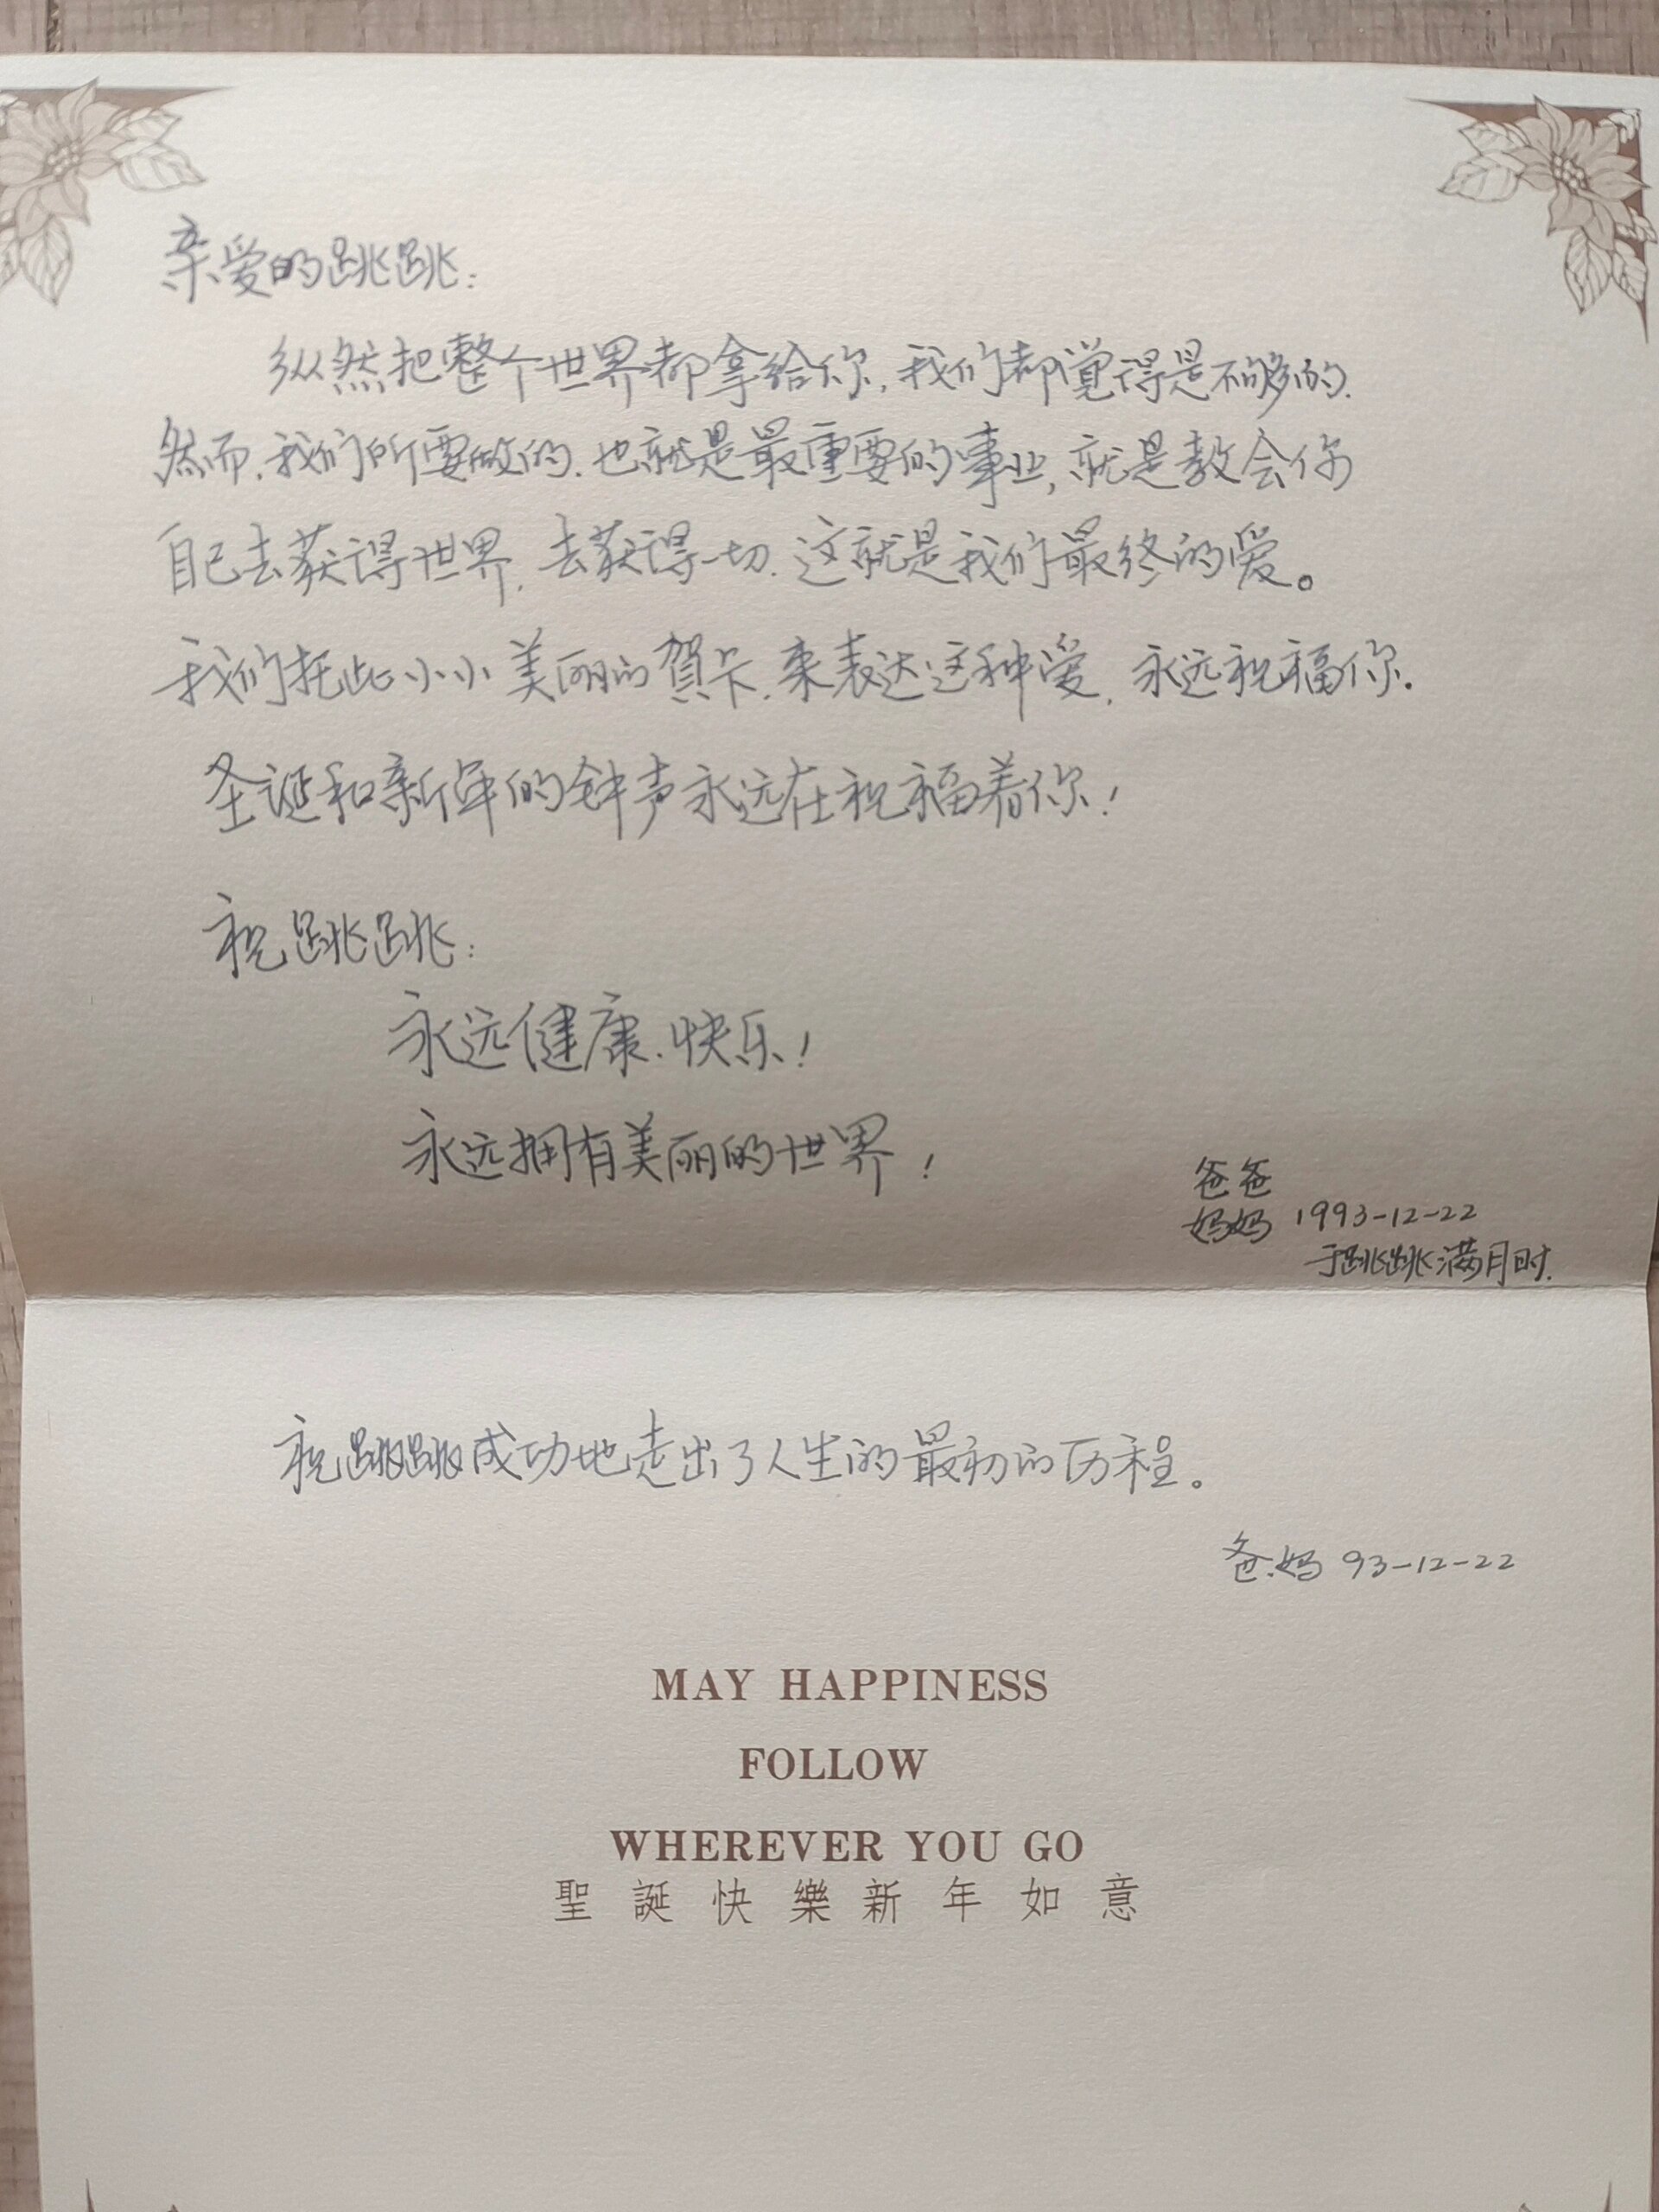 亲爱的跳跳：
纵然把整个世界都拿给你，我们都觉得是不够的.
然而，我们所要做的，也就是最重要的事业，就是教会你
自己去获得世界，去获得一切.这就是我们最终的爱。
我们托此小小美丽的賀卡，来表达这种爱，永远祝福你.
圣诞和新年的钟声永远在祝福着你！
祝跳跳：
永远健康.快乐！
永远拥有美丽的世界！
爸爸
妈妈 1993-12-22
于跳跳满月时.
祝跳跳成功地走出了人生的最初的历程。
爸.妈 93-12-22
MAY HAPPINESS
FOLLOW
WHEREVER YOU GO
聖誕快樂新年如意